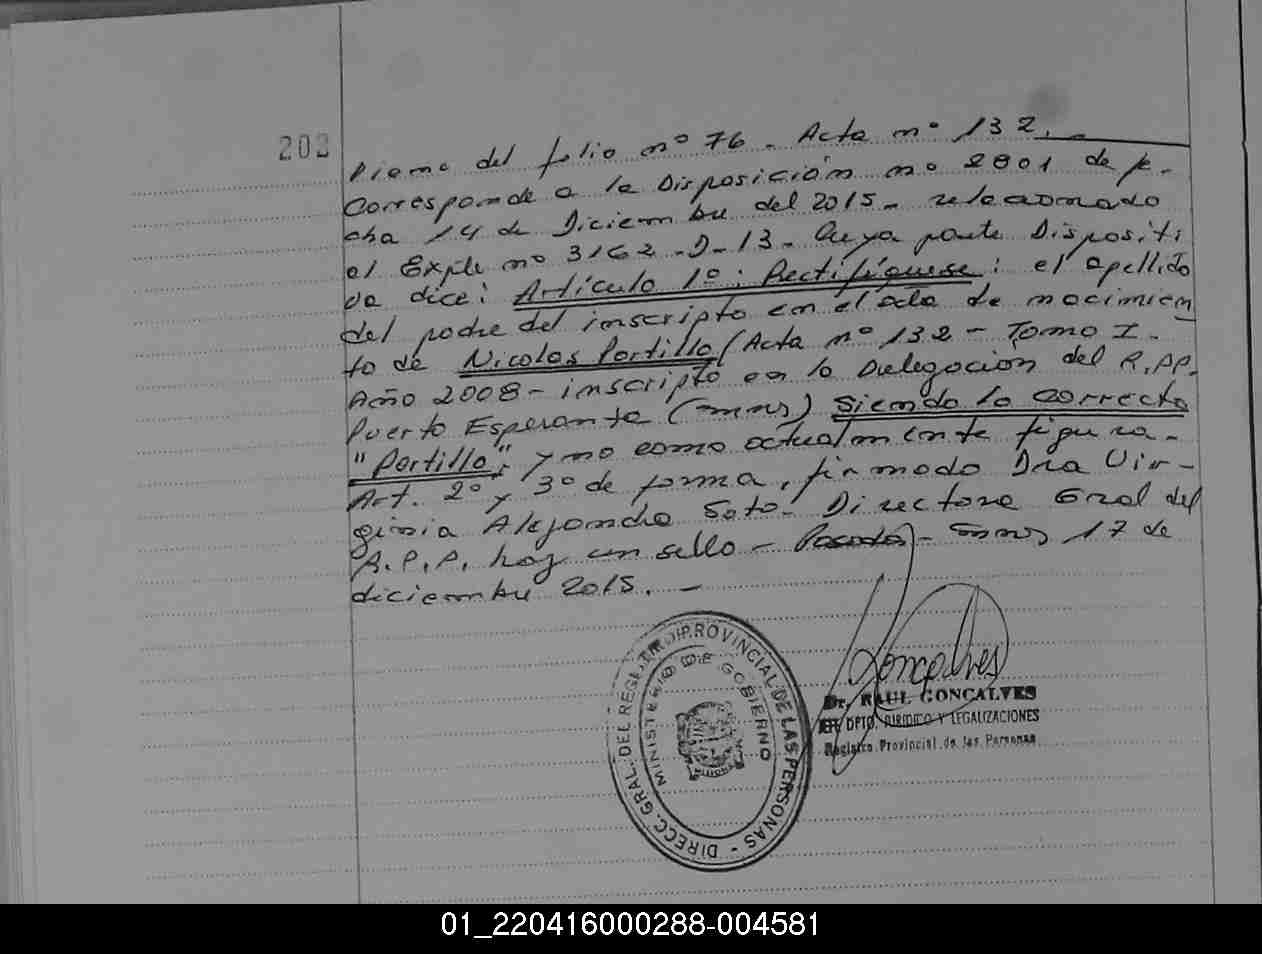 203
Viene del folio nº 76. Acta nº 132.-
Corresponde a la Disposición nº 2801 de fe-
cha 14 de Diciembre del 2015- relacionado
al Expte nº 3162-D-13- Cuya parte Dispositi
va dice: Artículo 1º: Rectifíquese: el apellido
del padre del inscripto en el acta de nacimien
to de Nicolas Portillo (Acta nº 132 - Tomo I -
Año 2008 - inscripto en la Delegación del R.PP.
Puerto Esperanza (mns) Siendo lo correcto
"Portillo", y no como actualmente figura-
Art. 2º y 3º de forma, firmado Dra Vir-
ginia Alejandra Soto- Directora Gral del
R.P.P. hay un sello - Posadas - mns, 17 de
diciembre 2015. -
DIRECC. GRAL. DEL REGISTRO PROVINCIAL DE LAS PERSONAS -
MINISTERIO DE GOBIERNO
MISIONES
Goncalves
Dr. RAUL GONCALVES
DPTO. JURIDICO Y LEGALIZACIONES
Registro Provincial de las Personas
01_220416000288-004581